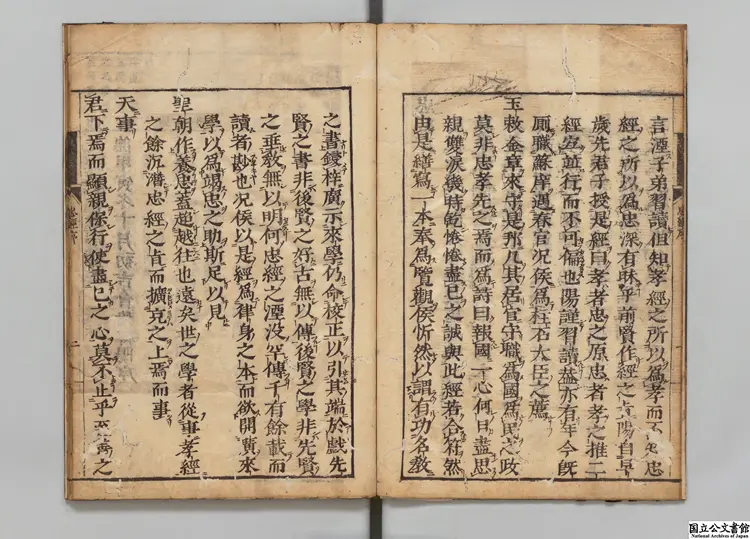 言湮子弟習讀但知孝經之所以為孝而不知忠
經之所以為忠深有昧乎前賢作經之旨陽自早
歲先君子授是經曰孝者忠之原忠者孝之推二
經互並行而不可偏也陽謹習讀蓋亦有年今既
厠職蘇庠遇春官况侯為柱石大臣之薦
玉敕金章來守是邦凡其居官守職為國為民之政
莫非忠孝先之焉而為詩曰報國一心何日盡思
親雙淚幾時乾惓惓盡已之誠與此經若合符然
由是繕寫一本奉為覽觀侯忻然以謂有功名教
之書鋟梓廣示來學仍命校正以引其端於戲先
賢之書非後賢之好古無以傳後賢之學非先賢
之垂教無以明何忠經之湮没罕傳千有餘載而
讀者尠也况侯以是經為律身之本而欲開冀來
學以為竭忠之助斯足以見
聖朝作養忠藎超越往也遠矣世之學者從事孝經
之餘沉潛忠經之旨而擴充之上焉而事
天事
君下焉而顯親保行使盡已之心莫不止乎至善之
忠經序
二
国立公文書館
National Archives of Japan